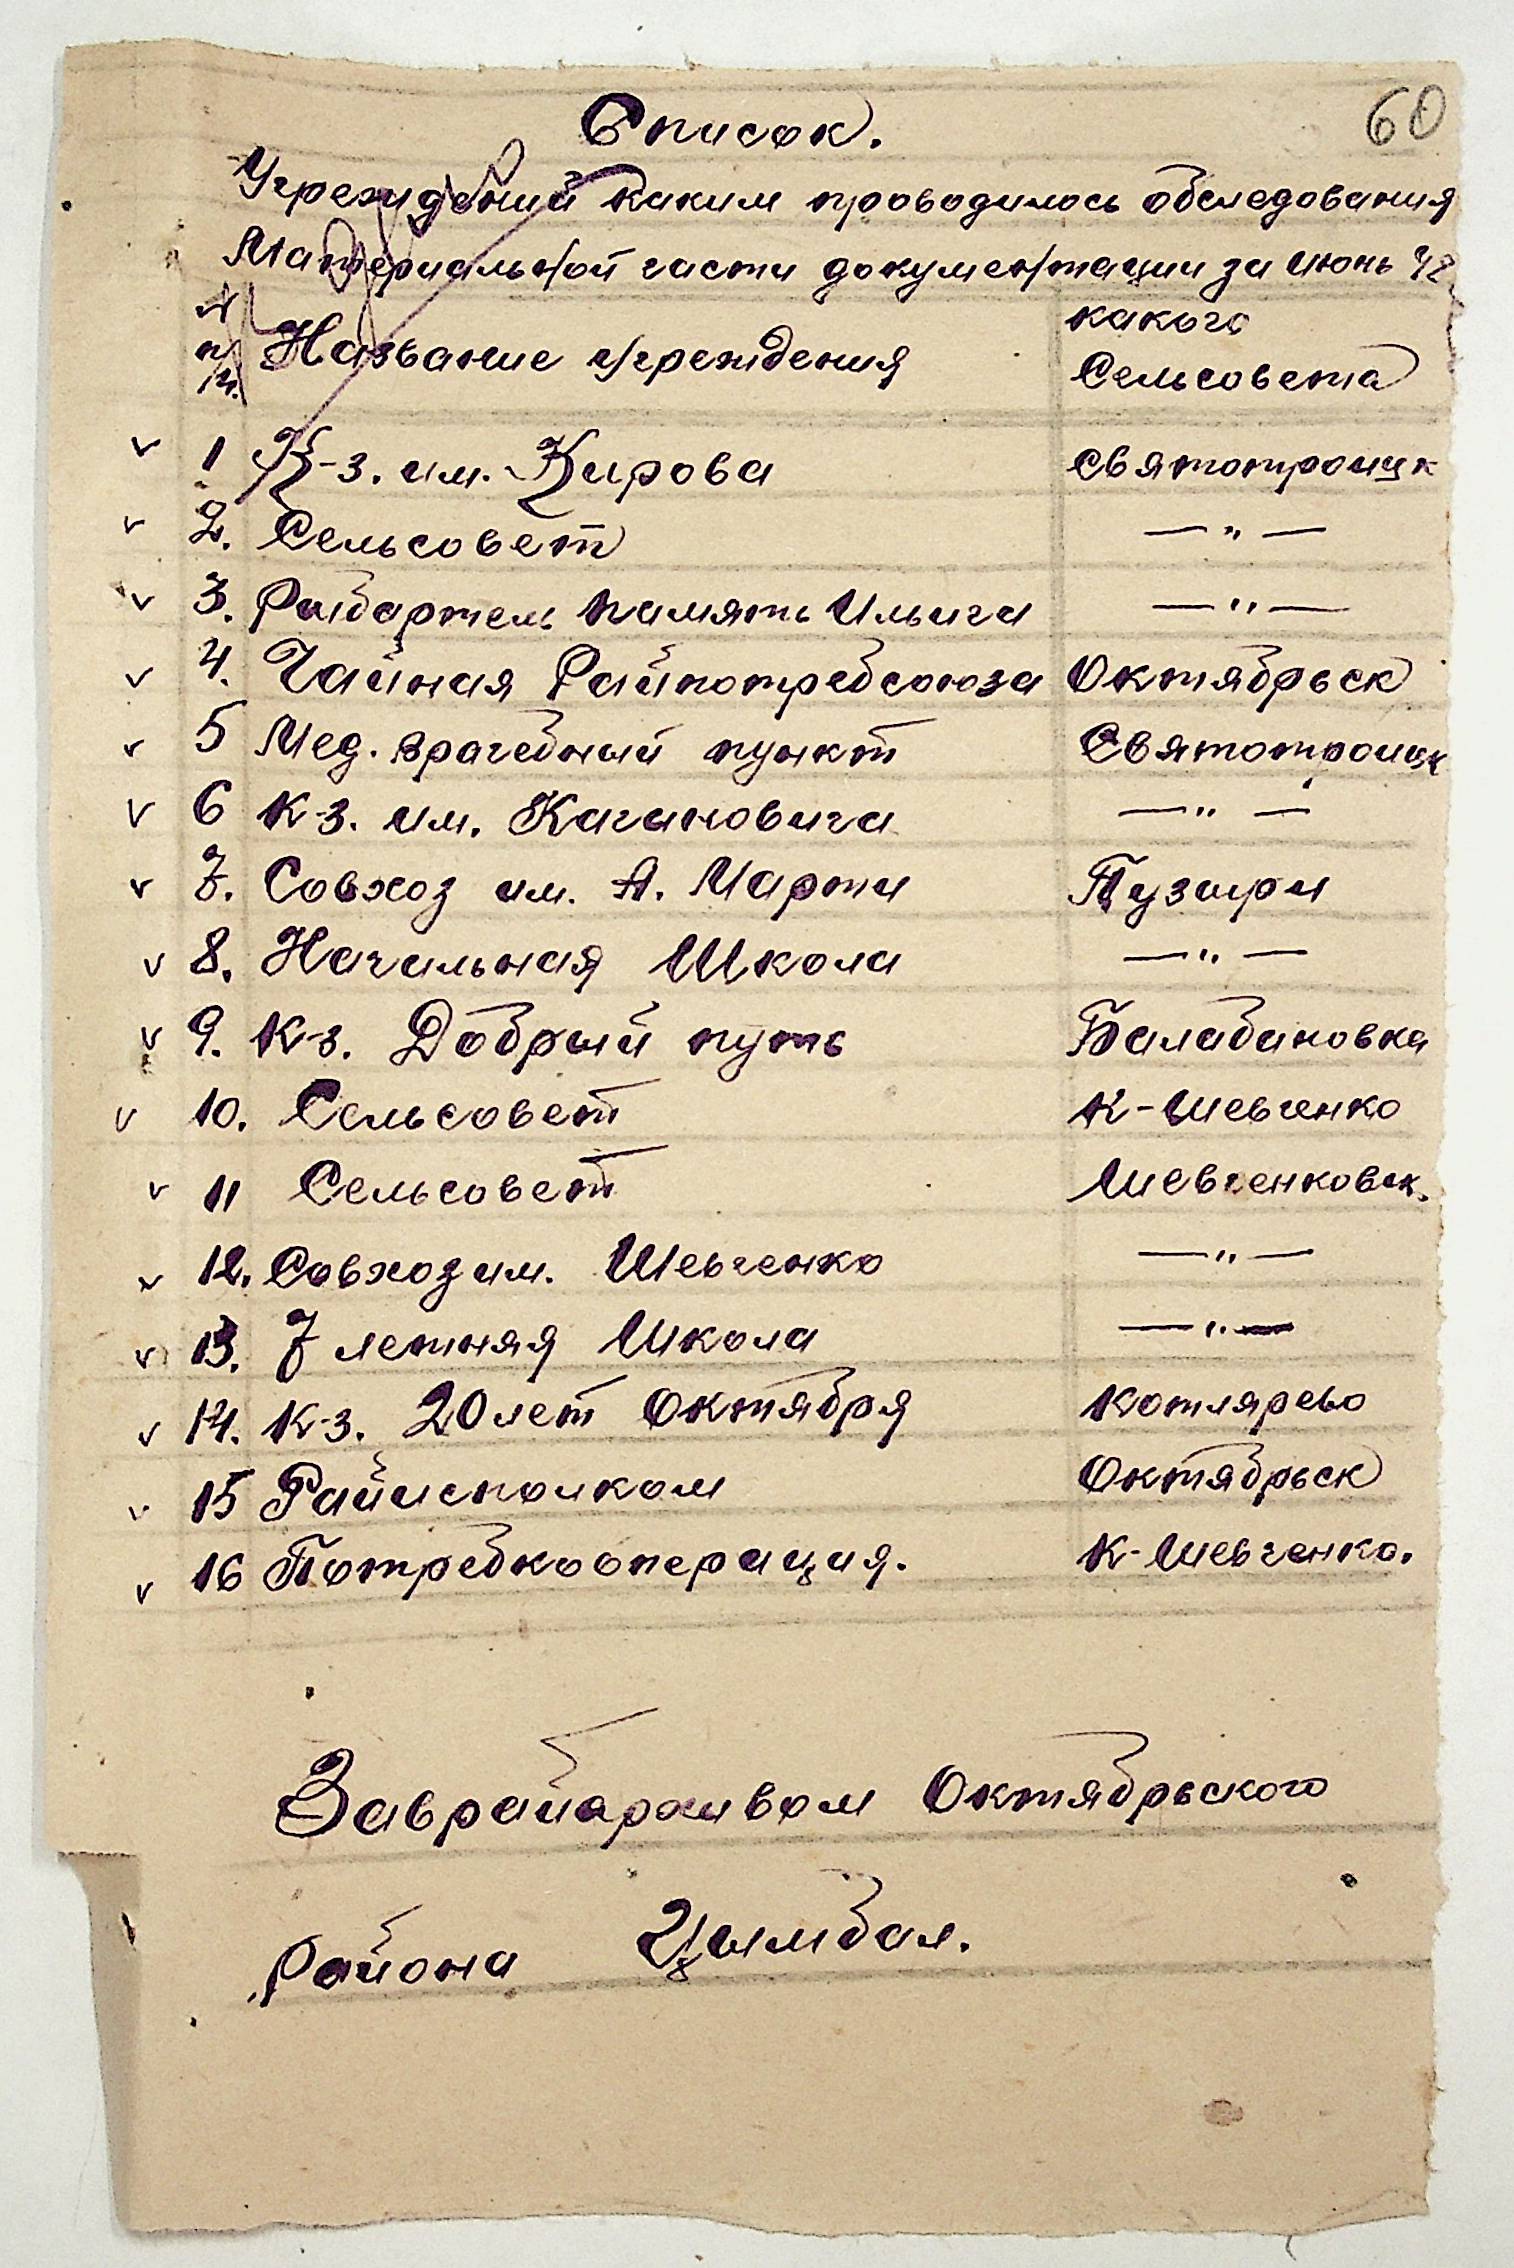 60
Список.
Учреждений каким проводилось обследования
Материальной части документации за июнь
№ п/п. Название учреждения какого Сельсовета
v 1 К-з. им. Кирова Святотроицк
v 2. Сельсовет — " —
v 3. Рыбартель память Ильича — " —
v 4. Чайная Райпотребсоюза Октябрьск
v 5 Мед. врачебный пункт Святотроицк
v 6 К-з. им. Кагановича — " —
v 7. Совхоз им. А. Марти Пузыри
v 8. Начальная Школа — " —
v 9. К-з. Добрый путь Балабановка
v 10. Сельсовет К-Шевченко
v 11 Сельсовет Шевченковск.
v 12. Совхоз им. Шевченко — " —
v 13. 7 летняя Школа — " —
v 14. К-з. 20 лет Октября Котлярево
v 15 Райисполком Октябрьск
v 16 Потребкооперация. К-Шевченко.
Заврайархивом Октябрьского
района Цымбал.